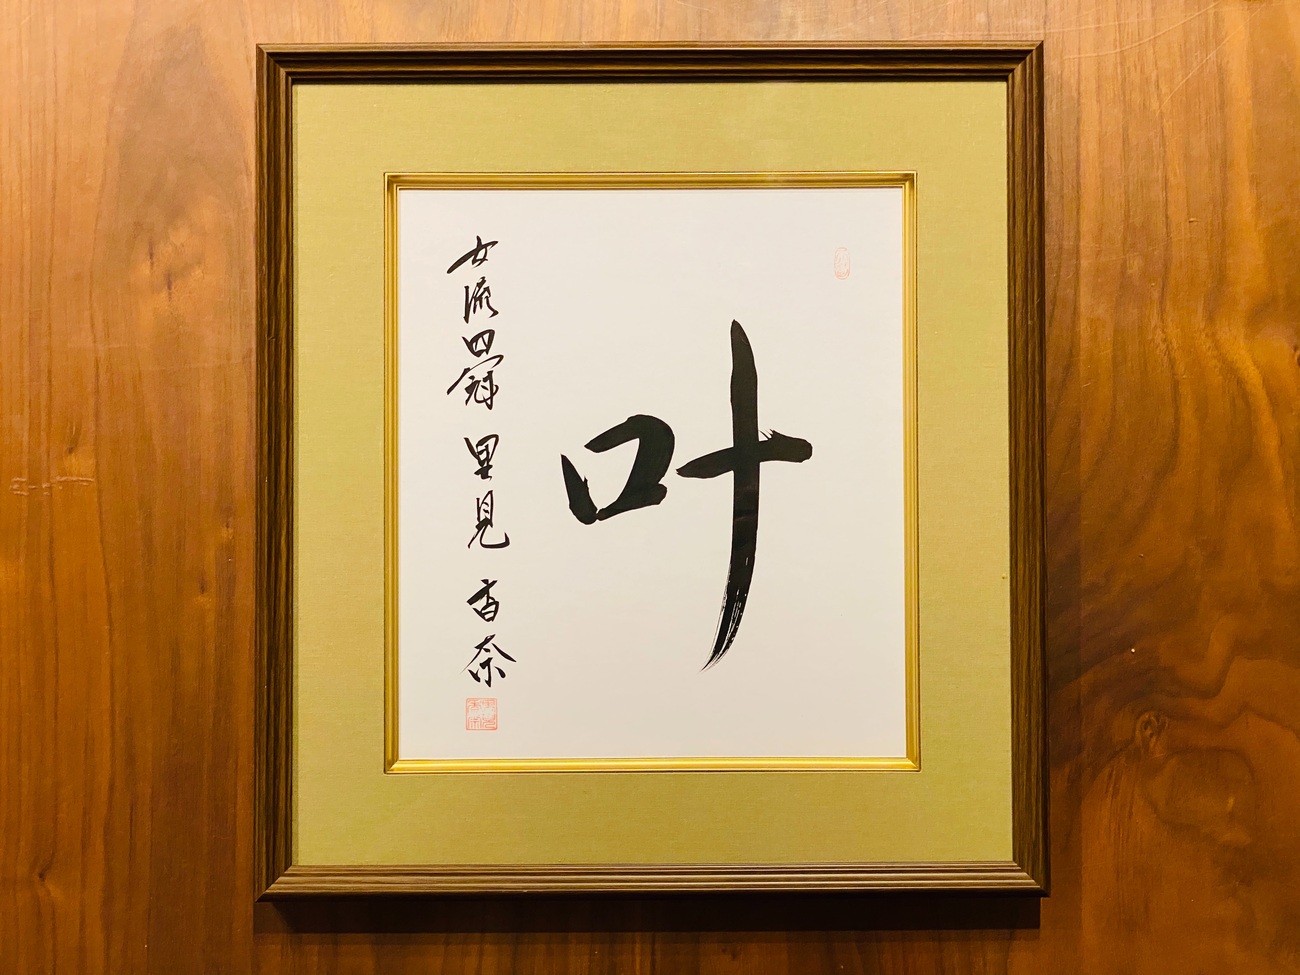 叶
女流四冠 里見 香奈